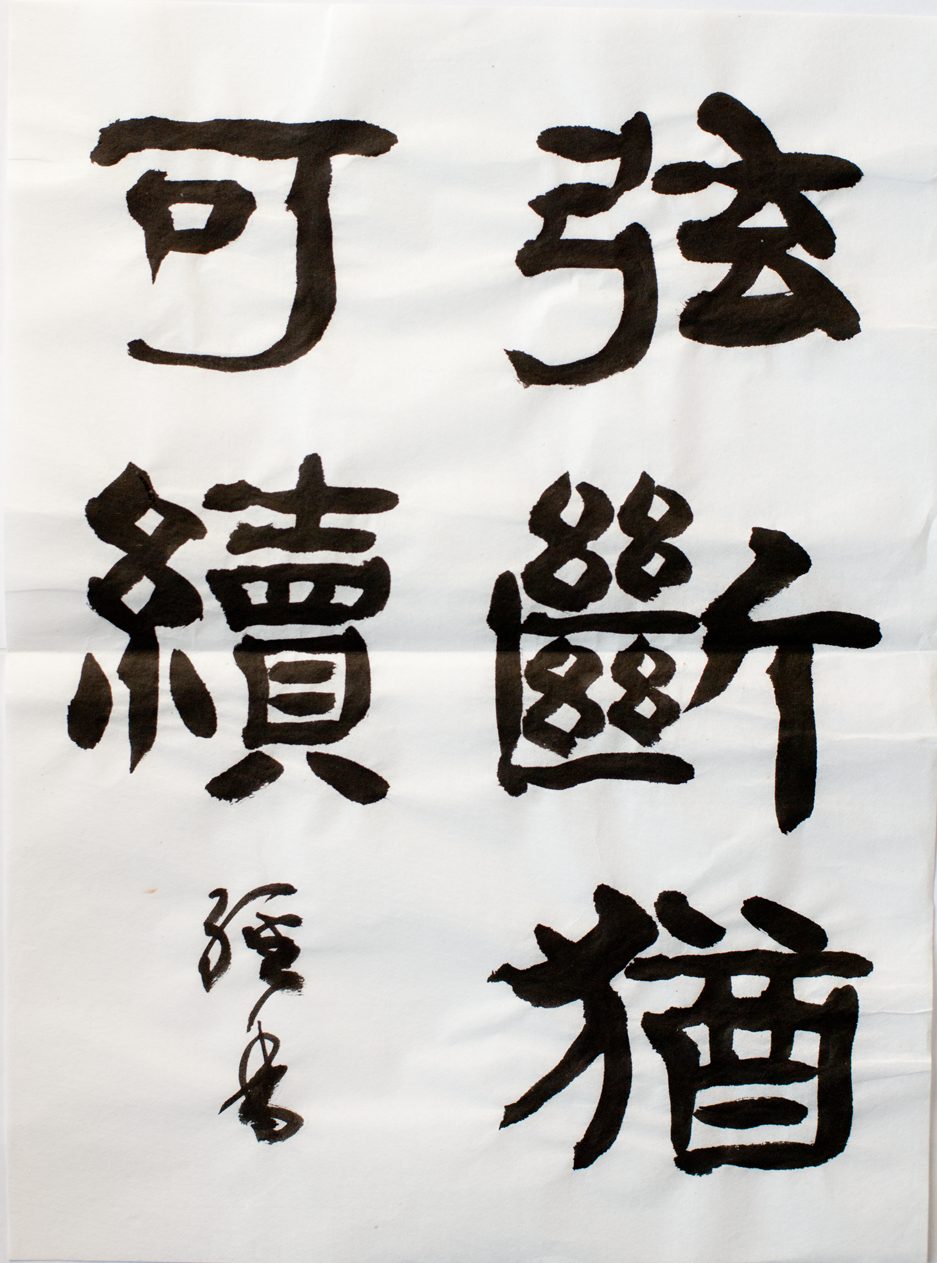 弦斷猶
可續
書